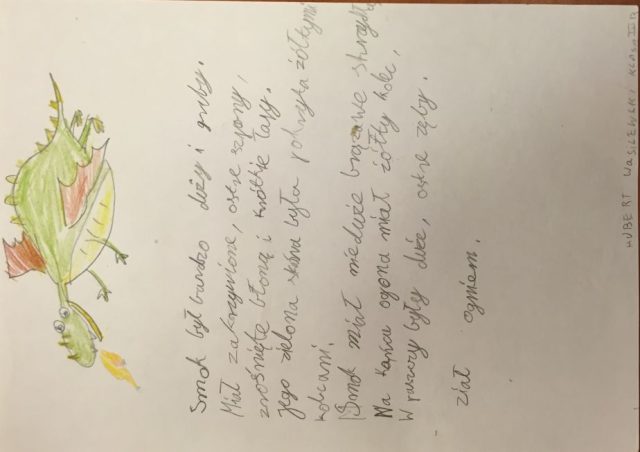 Smok był bardzo duży i gruby.
Miał zakrzywione, ostre szpony,
zrośnięte błoną i krótkie łapy.
Jego zielona skóra była pokryta żółtymi
kolcami.
Smok miał nieduże brązowe skrzydła
Na końcu ogona miał żółty kolec,
W paszczy były duże, ostre zęby.
Ział ogniem.
HUBERT WASILEWSKI KLASA